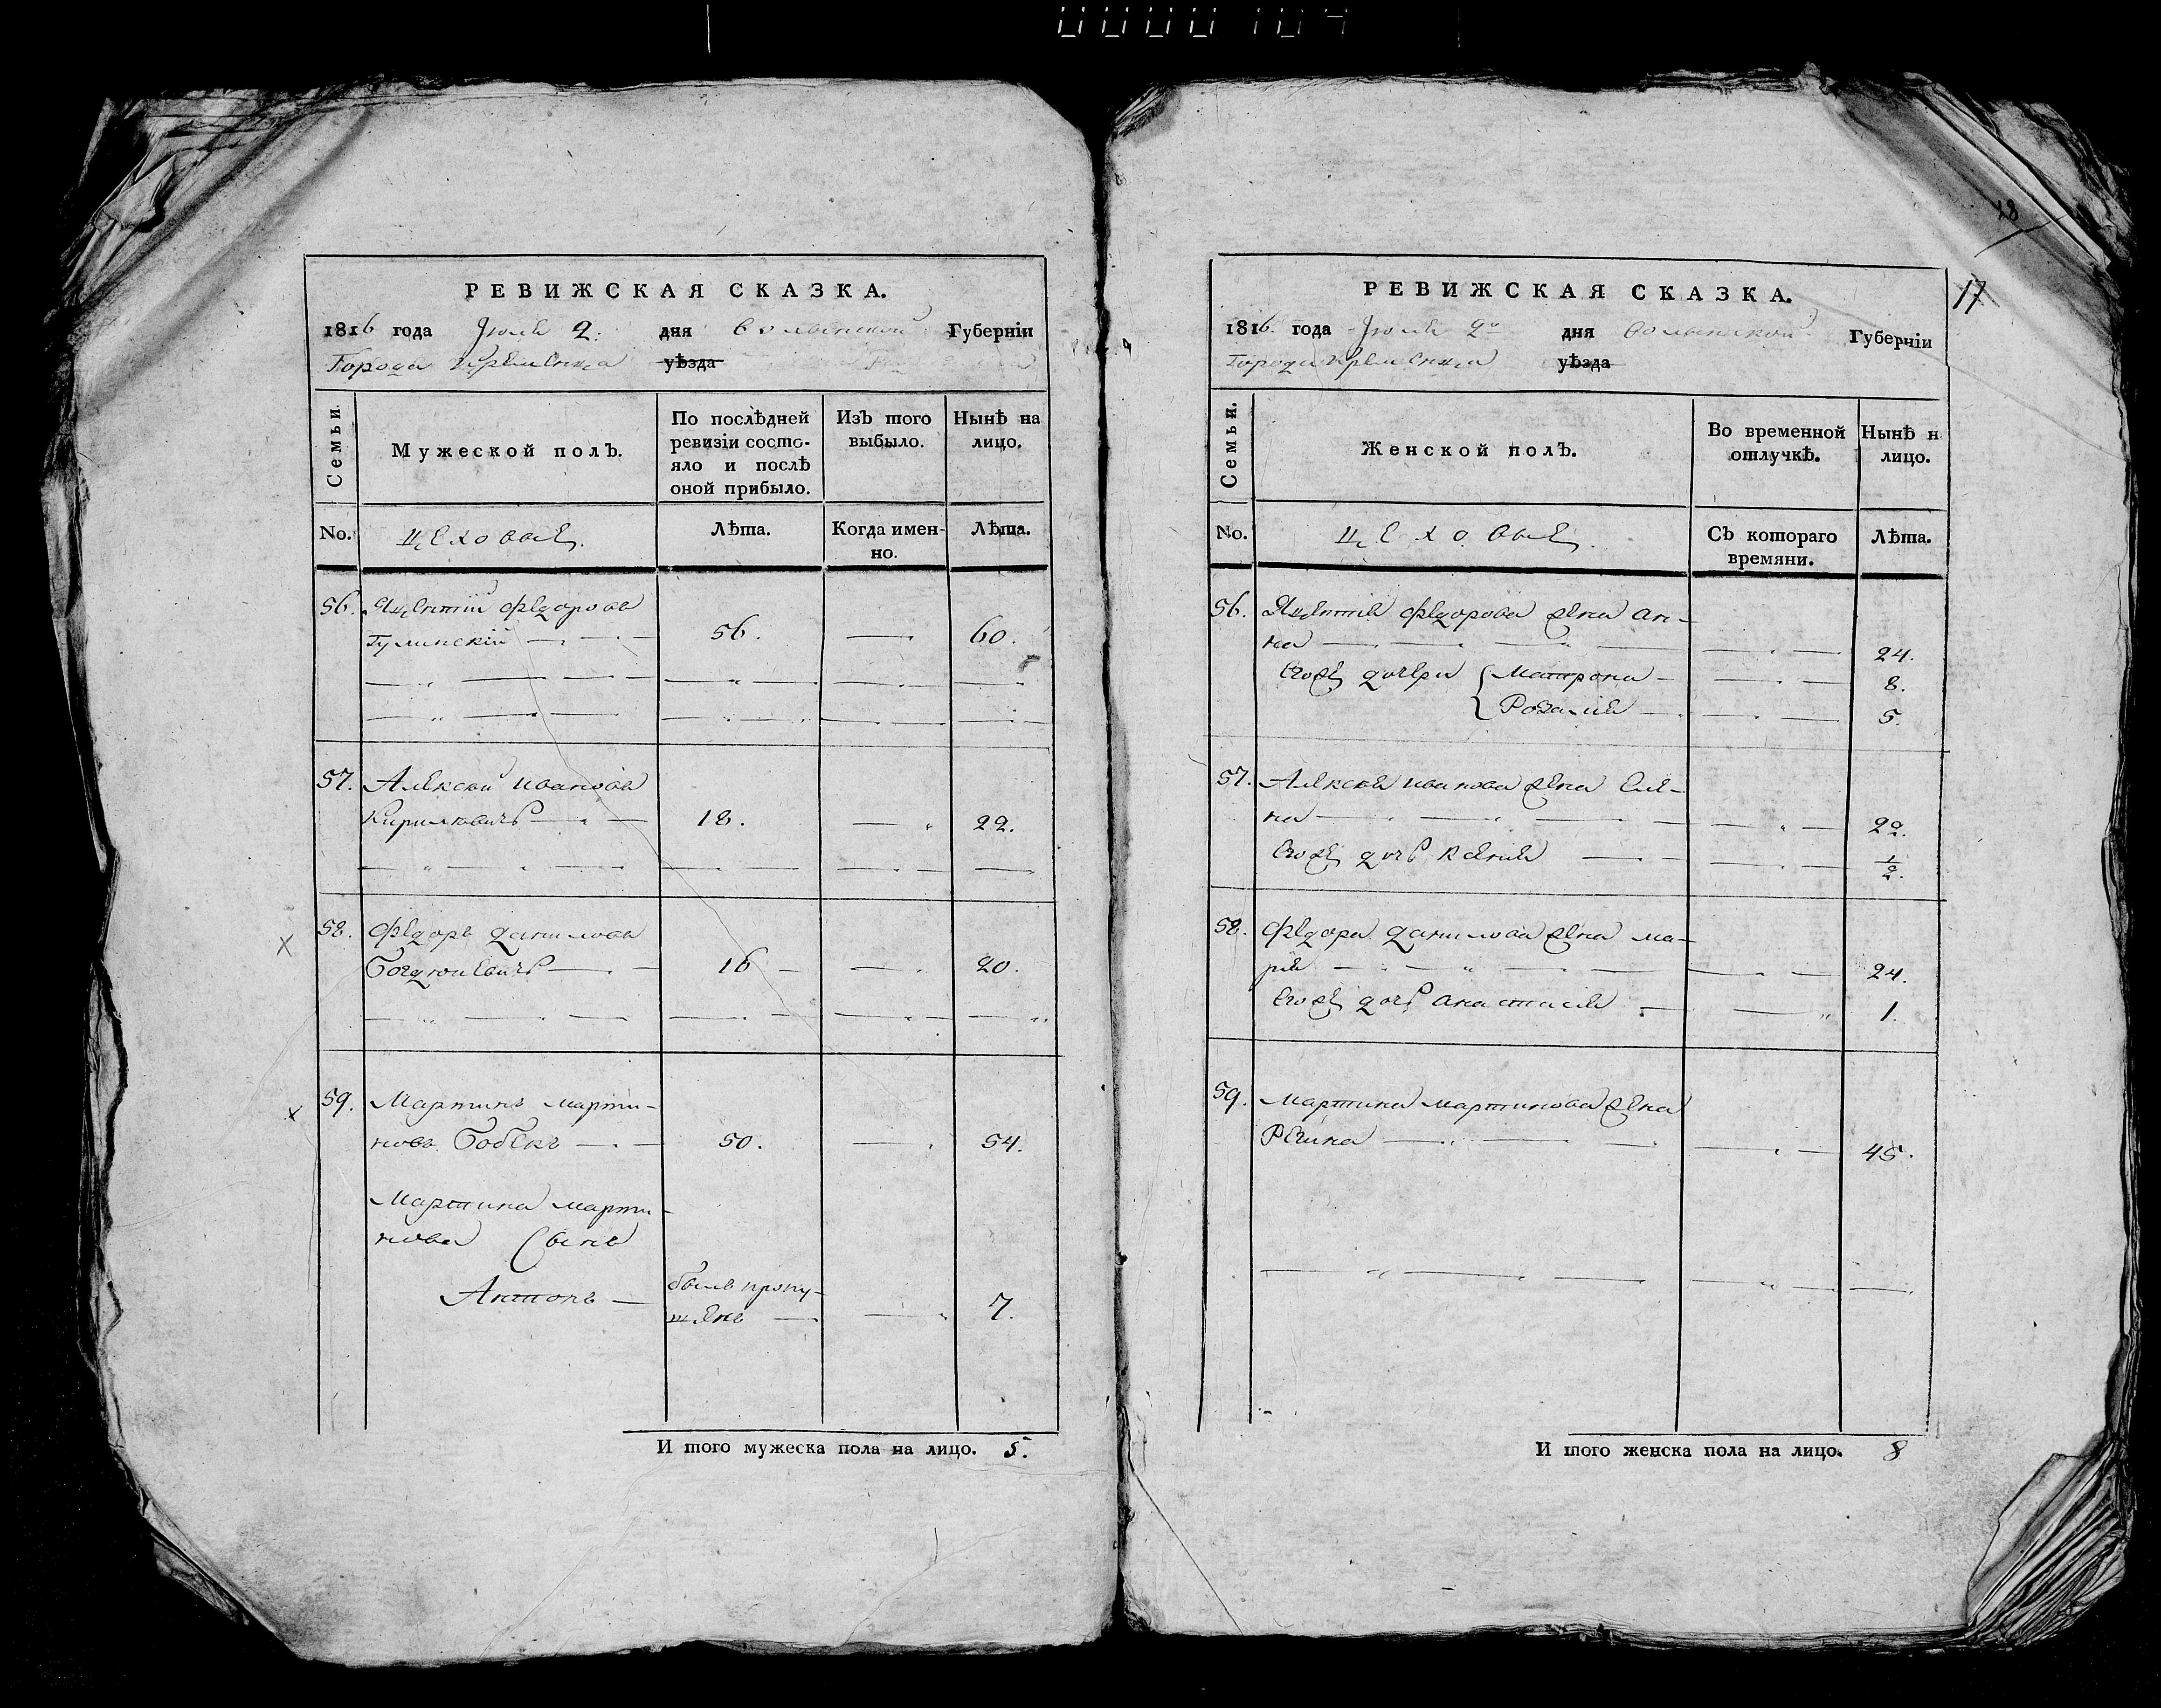 0000104
РЕВИЖСКАЯ СКАЗКА.
1816 года Июля 2. дня Волынской Губернїи
Города Кременца уѣзда
Семьи.
Мужеской полЪ.
По послѣдней
ревизїи состо-
яло и послѣ
оной прибыло.
ИзЪ того
выбыло.
Нынѣ на
лицо.
No.
Цеховые
Лѣта.
Когда имен-
но.
Лѣта.
56. Яцентїй Федоровъ
Гулинскїй 56. 60.
57. Алексѣй Ивановъ
Кириловичъ 18. 22.
58. Федоръ Даниловъ
16 20.
59. Мартинъ Марти-
новъ Бобекъ 50. 54.
Мартина Марти-
нова Сынъ
Антонъ
былъ пропу-
щенъ
7.
И того мужеска пола на лицо. 5.
18
17
РЕВИЖСКАЯ СКАЗКА.
1816. года Июля 2го дня Волынской Губернїи
Города Кременца уѣзда
Семьи.
Женской полЪ.
Во временной
отлучкѣ.
Нынѣ н
лицо.
No.
Цеховые.
СЪ котораго
времяни.
Лѣта.
56. Яцентїя Федорова жена Ан-
на 24.
Егоже дочери Матрона 8.
Розалїя 5.
57. Алексѣя Иванова жена Еле-
на 22.
Егоже дочь Ксенїя 1/2.
58. Федора Данилова жена Ма-
рїя 24.
Егоже дочь Анастасїя 1.
59. Мартина Мартинова жена
Регина 45.
И того женска пола на лицо. 8